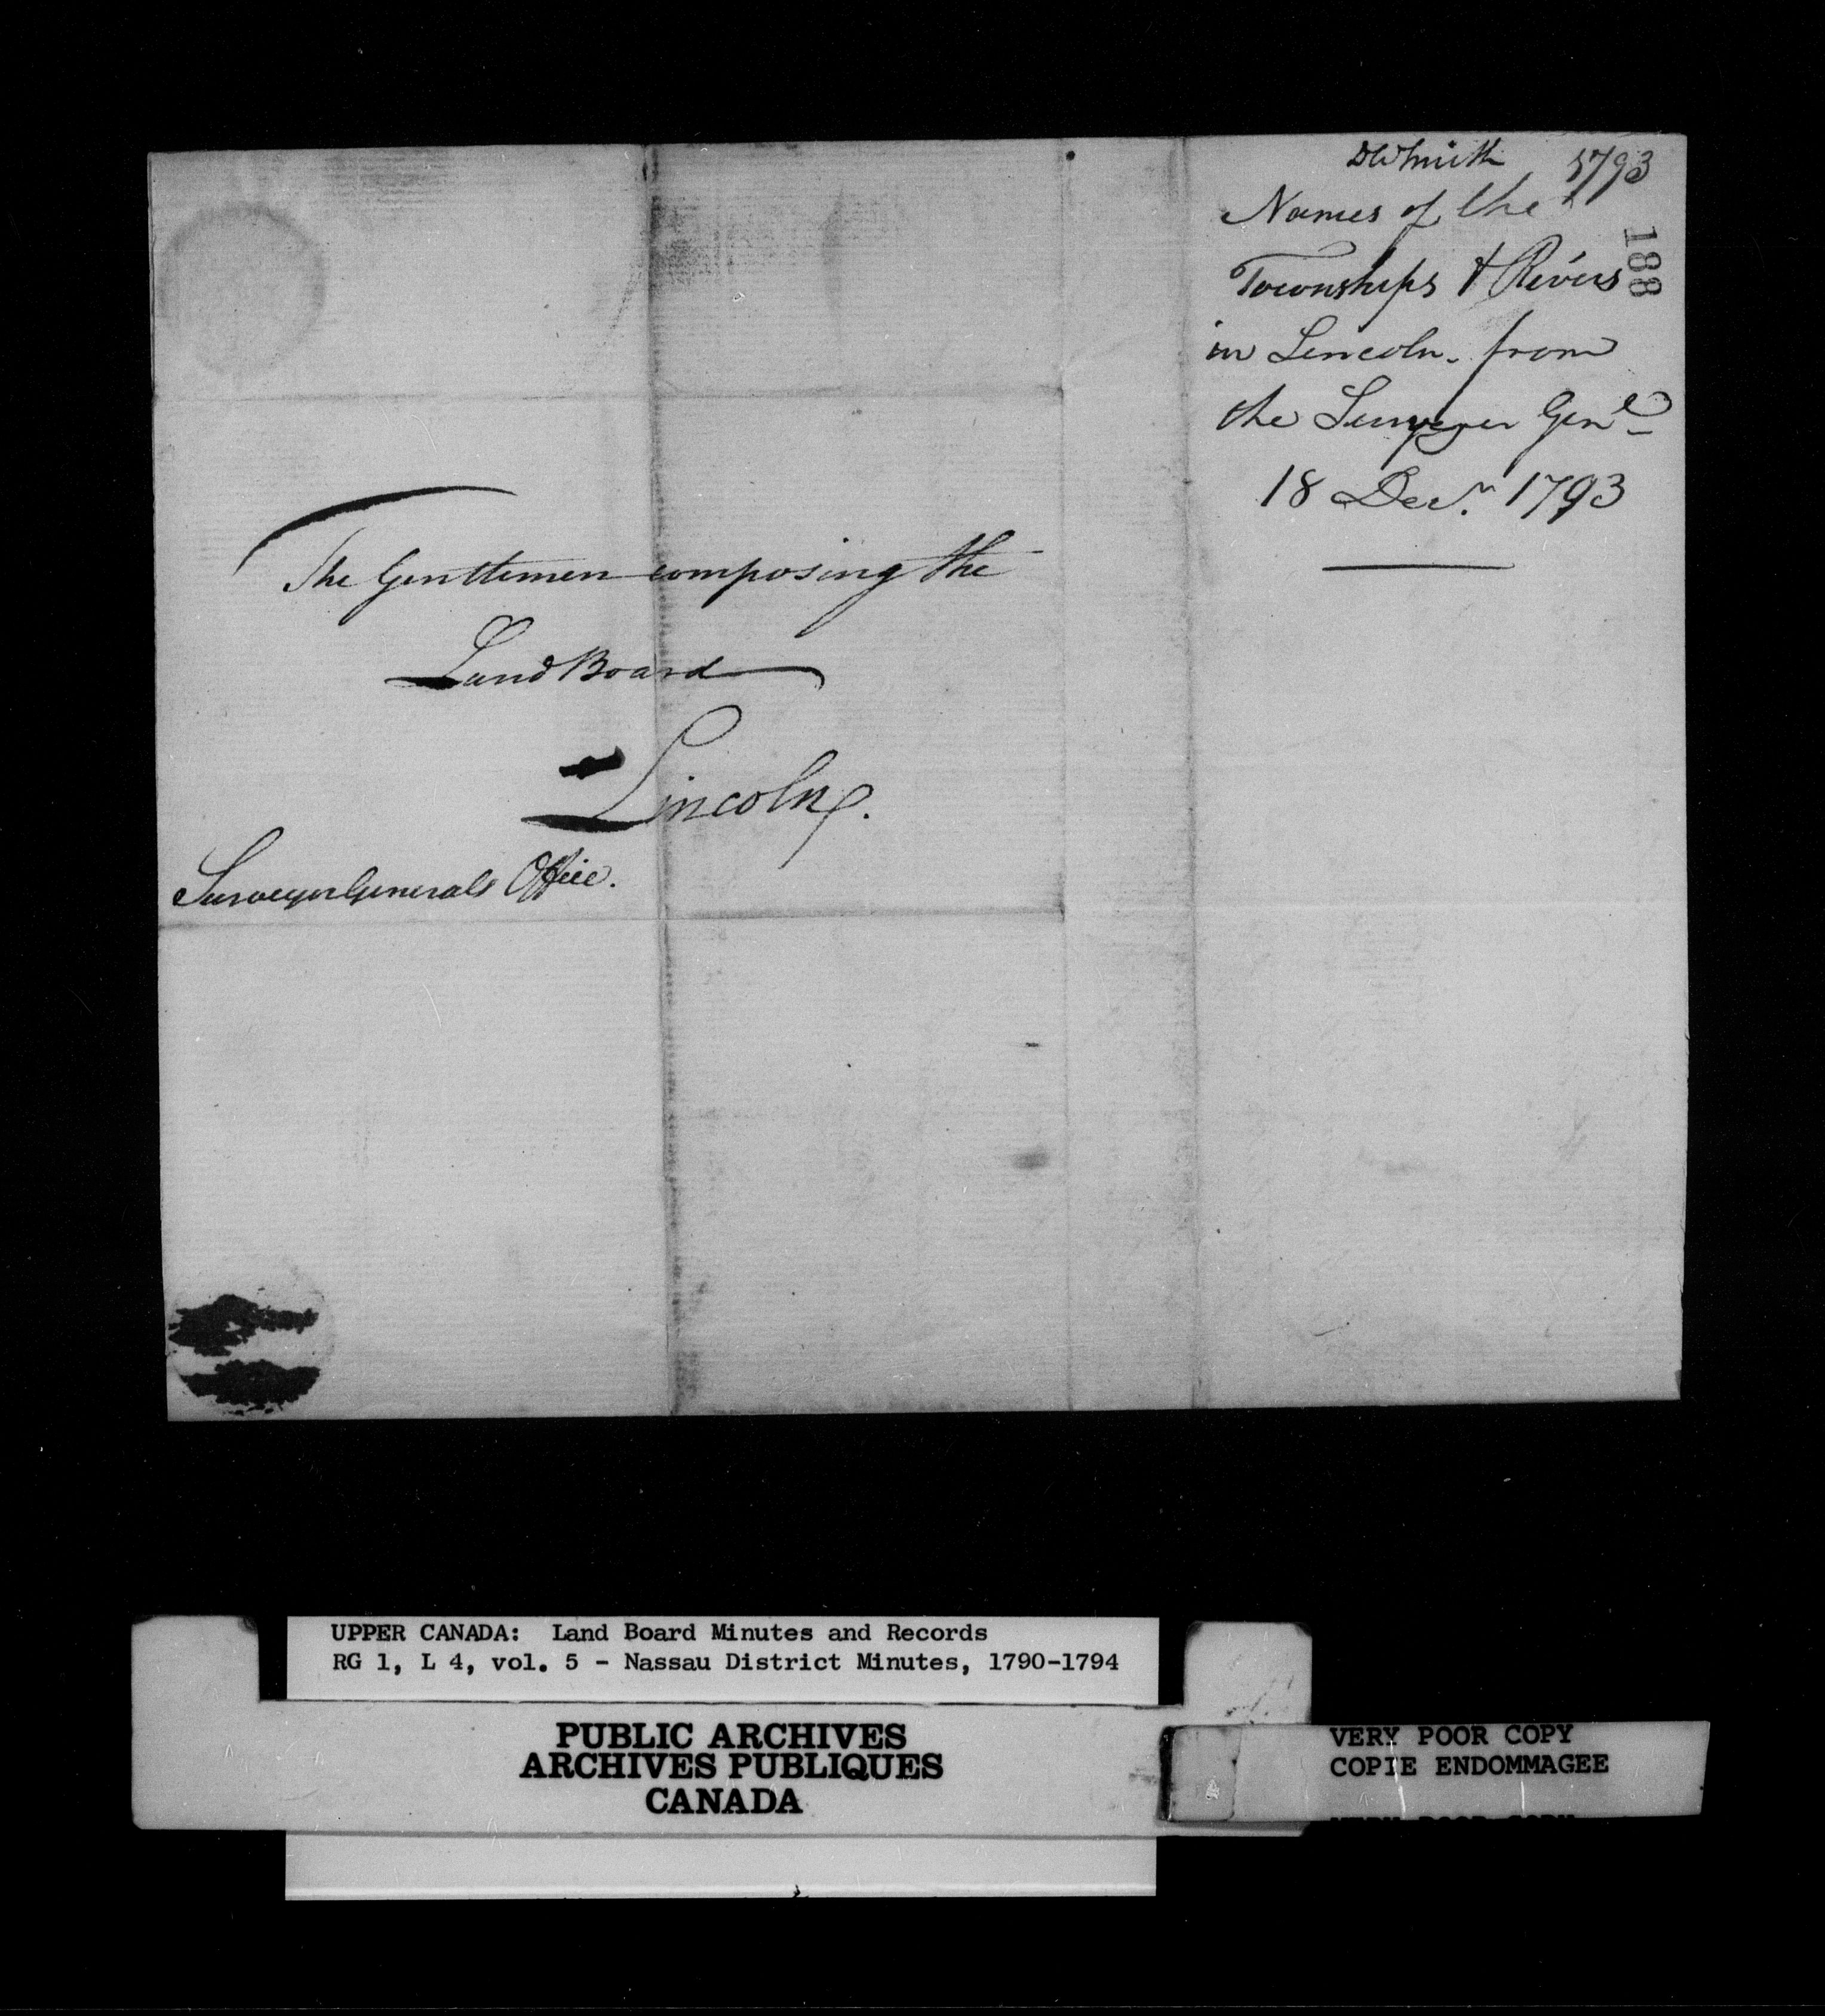 DWSmith 1793
Names of the
Townships & Rivers
in Lincoln - from
the Surveyor Genl
18 Decr. 1793
188
The Gentlemen composing the
Land Board
Lincoln.
Surveyor Generals Office.
UPPER CANADA: Land Board Minutes and Records
RG 1, L 4, vol. 5 - Nassau District Minutes, 1790-1794
PUBLIC ARCHIVES
ARCHIVES PUBLIQUES
CANADA
VERY POOR COPY
COPIE ENDOMMAGEE
VERY POOR COPY